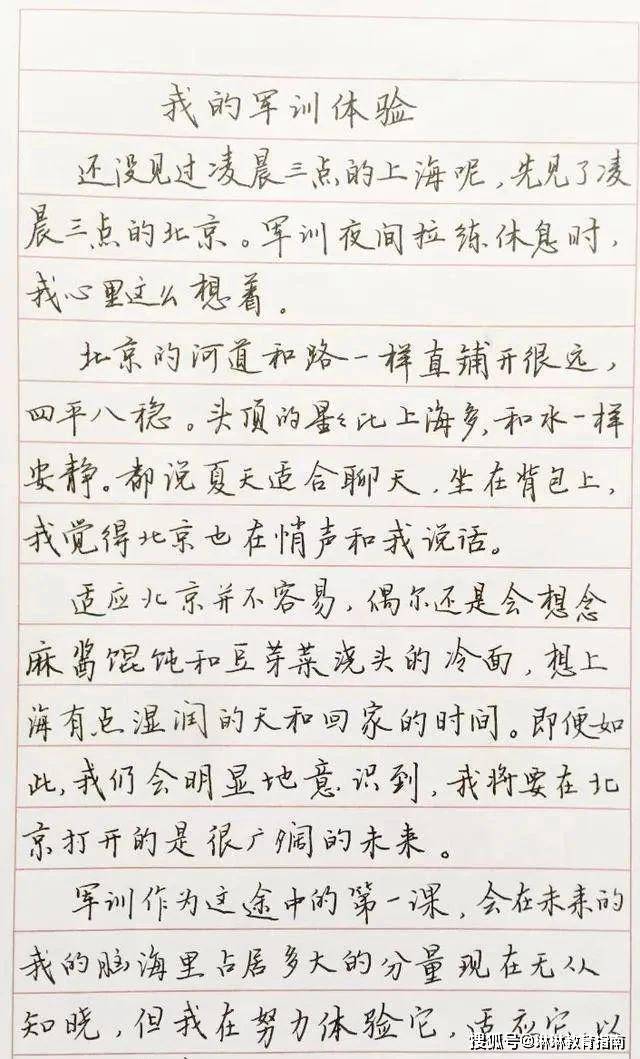 我的军训体验
还没见过凌晨三点的上海呢,先见了凌
晨三点的北京。军训夜间拉练休息时,
我心里这么想着。
北京的河道和路一样直铺开很远,
四平八稳。头顶的影比上海多,和水一样
安静。都说夏天适合聊天,坐在背包上,
我觉得北京也在悄声和我说话。
适应北京并不容易,偶尔还是会想念
麻酱馄饨和豆芽菜浇头的冷面,想上
海有点湿润的天和回家的时间。即便如
此,我们会明显地意识到,我将要在北
京打开的是很广阔的未来。
军训作为这途中的第一课,会在未来的
我的脑海里占居多大的分量现在无从
知晓,但我在努力体验它,适应它,以
搜狐号@琳琳教育指南